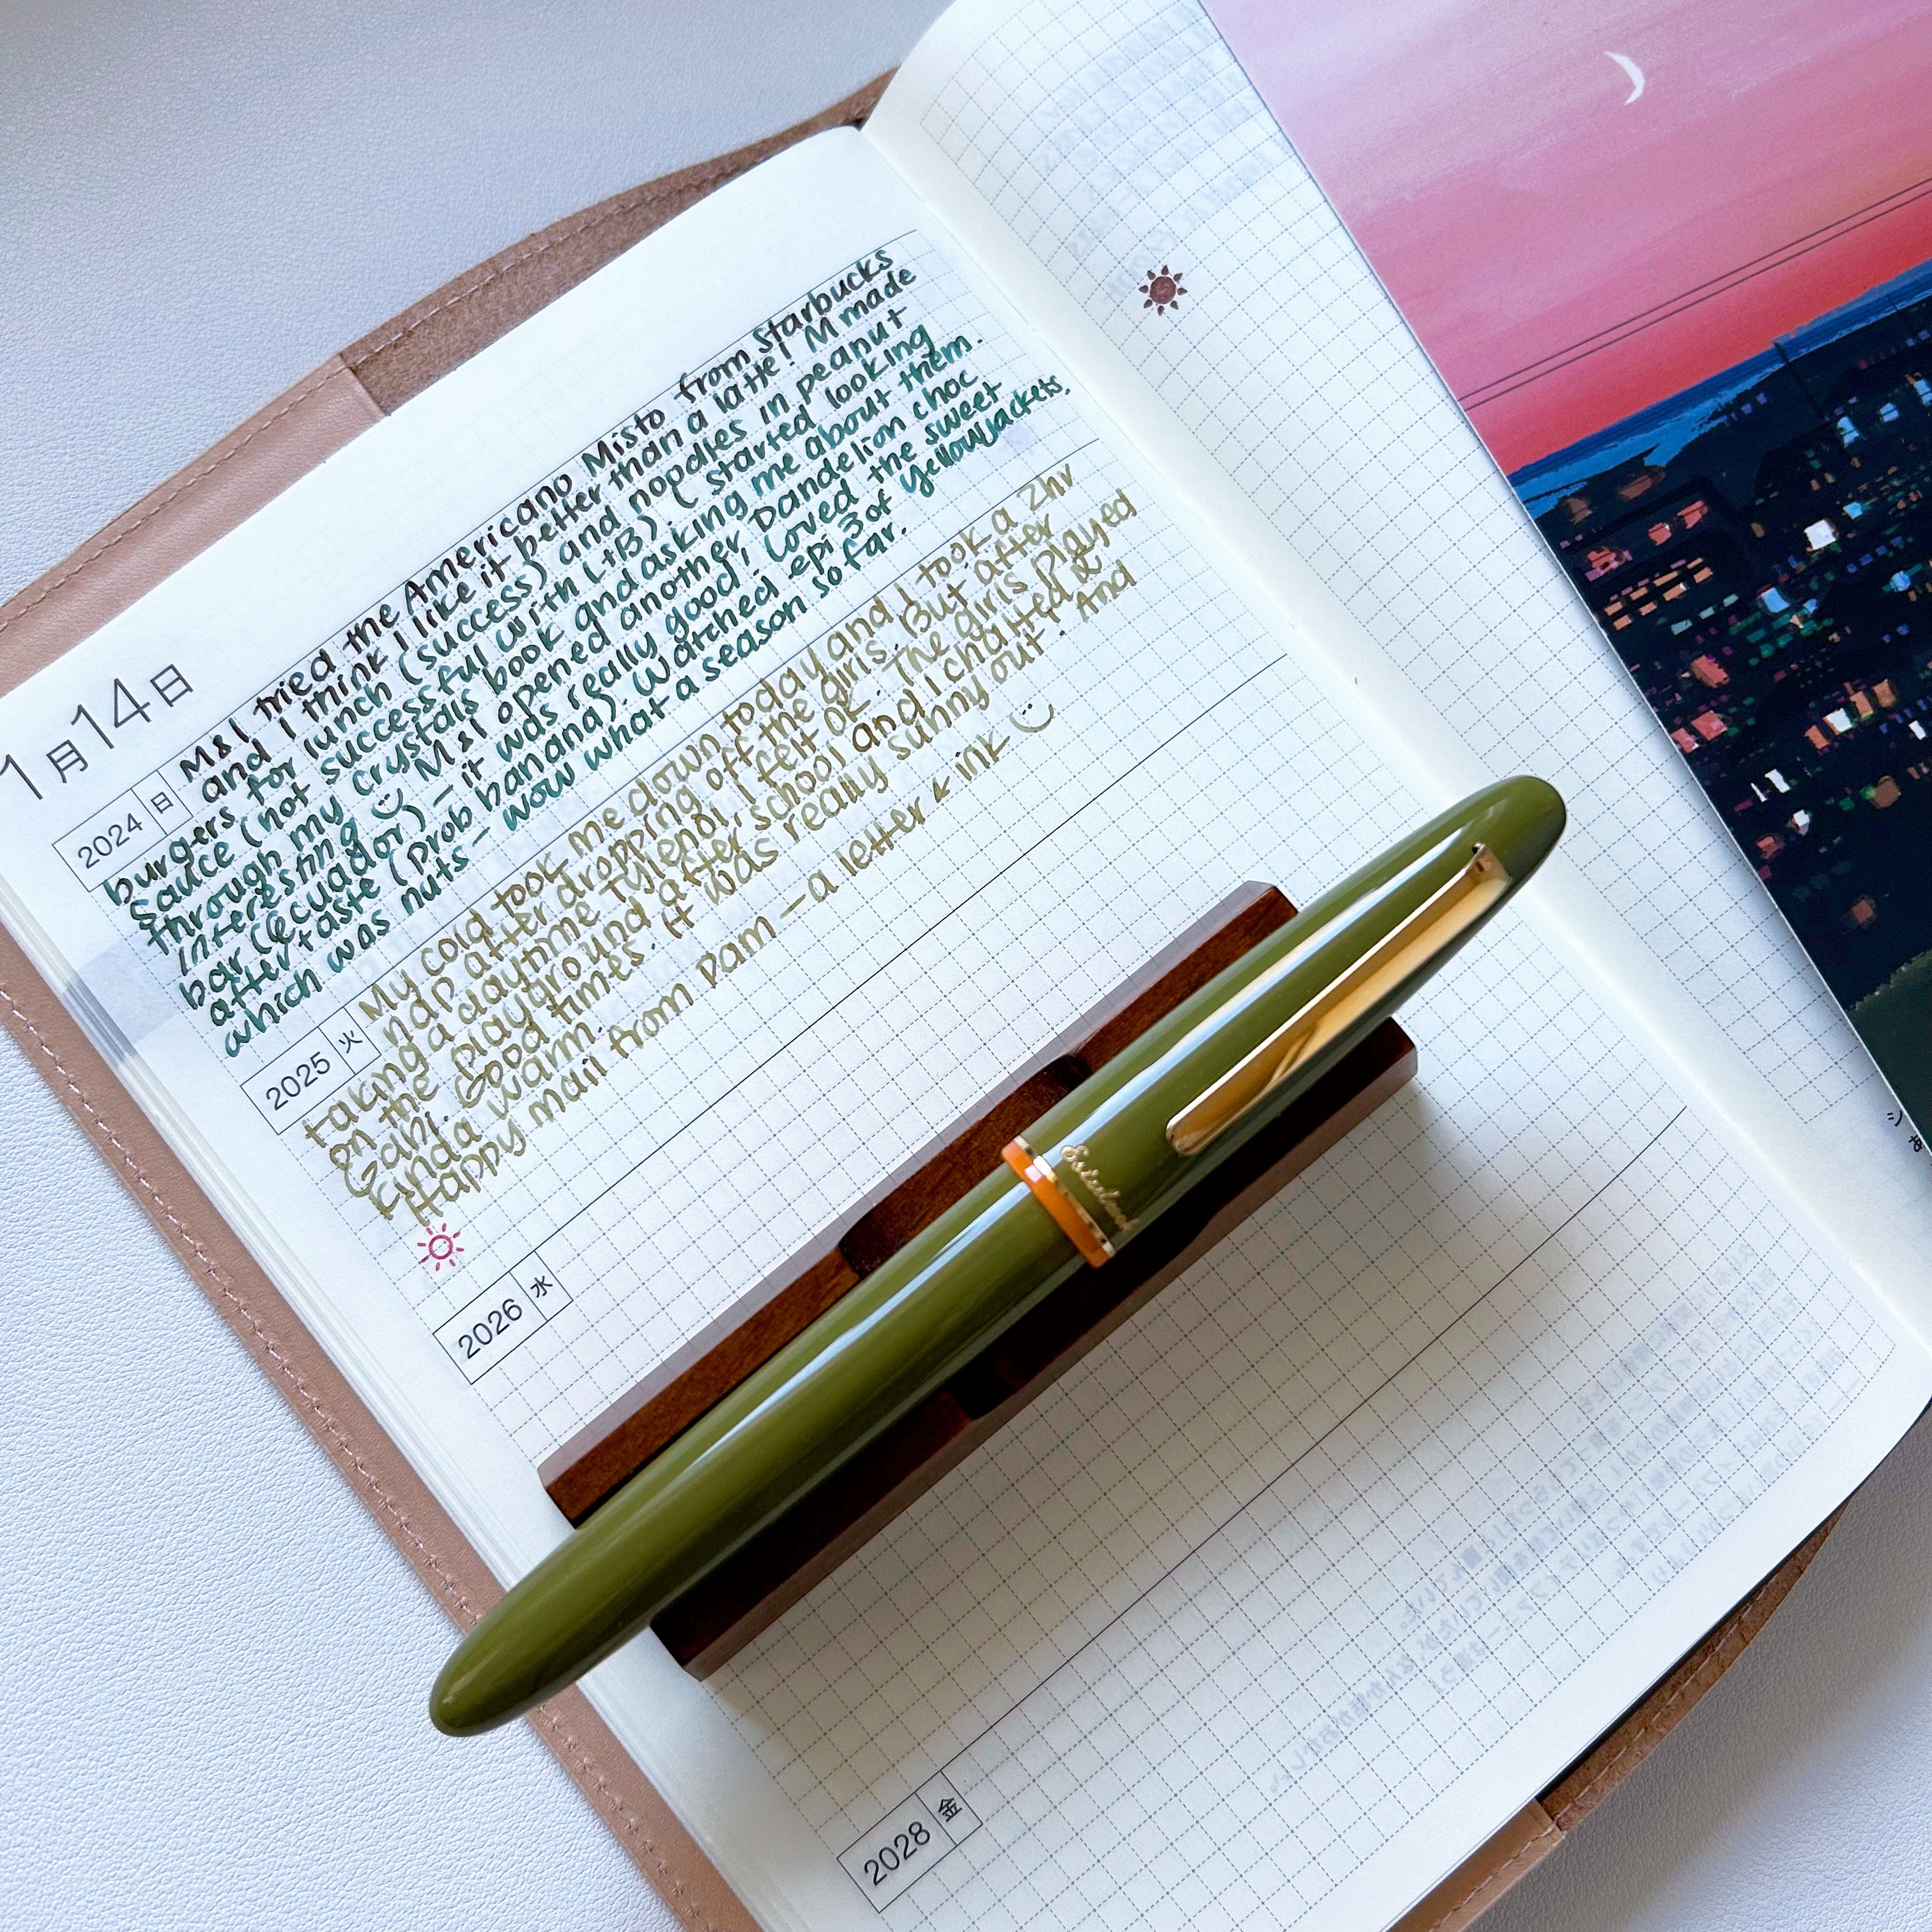 1月14日
2024 日
M&I tried the Americano Misto from Starbucks
and I think I like it better than a latte! M made
burgers for lunch (success) and noodles in peanut
sauce (not successful with L+B). C started looking
through my crystals book and asking me about them.
Interesting M&I opened another Dandelion choc
bar (Ecuador) - it was really good! Loved the sweet
after taste (prob banana). Watched epi 3 of Yellowjackets.
which was nuts - wow what a season so far.
2025 火
My cold took me down today and I took a 2hr
nap after dropping off the girls. But after
taking a daytime Tylenol, I felt OK. The girls played
on the playground after school and I chatted w/
Gabi. Good times. It was really sunny out. And
kinda warm.
Happy mail from Pam - a letter & ink
2026 水
Esterbrook
2028 金